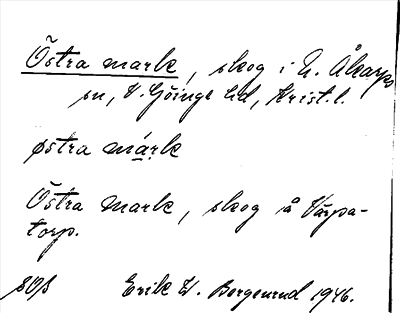 Östra mark, skog i N. Åkarps
sn, V. Göinge hd, Krist. l.
østra márk
Östra Mark, skog å Värpa-
torp.
Erik W. Bergenrud 1946.